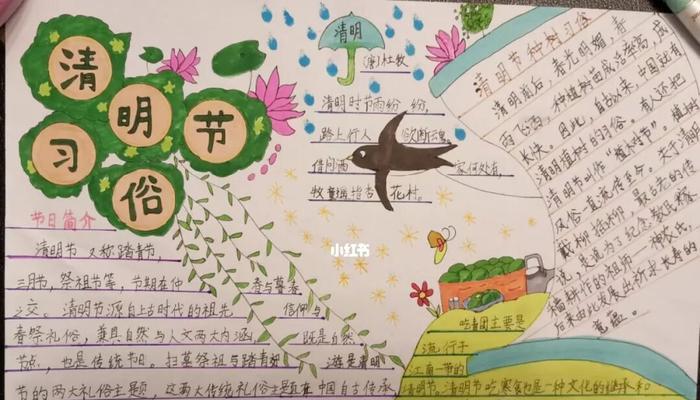 清明节习俗
节日简介
清明节 又称踏青节,
三月节,祭祖节等,节期在仲 春与暮春
之交。清明节源自上古时代的祖先 信仰与
春祭礼俗,兼具自然与人文两大内涵, 既是自然
节点,也是传统节日。扫墓祭祖与踏青郊 游是清明
节的两大礼俗主题,这两大传统礼俗主题在中国自古传承
清明
(唐)杜牧
清明时节雨纷 纷,
路上行人 欲断魂
借问酒 家何处有,
牧童遥指杏 花村。
小红书
吃青团主要是
流行于
江南一带的
清明节。清明节吃寒食也是一种文化的继承和
清明节种树习俗
清明前后,春光明媚,春
雨飞洒,种植树苗成活率高,成
长快。因此,自古以来,中国就有
清明植树的习俗。有人还把
清明节叫作"植树节"。植树
风俗一直流传至今。关于清明
戴柳插柳,最古老的传
说,是为了纪念教民稼
穑耕作的祖师—神农氏,
后来由此发展出祈求长寿的
意蕴。